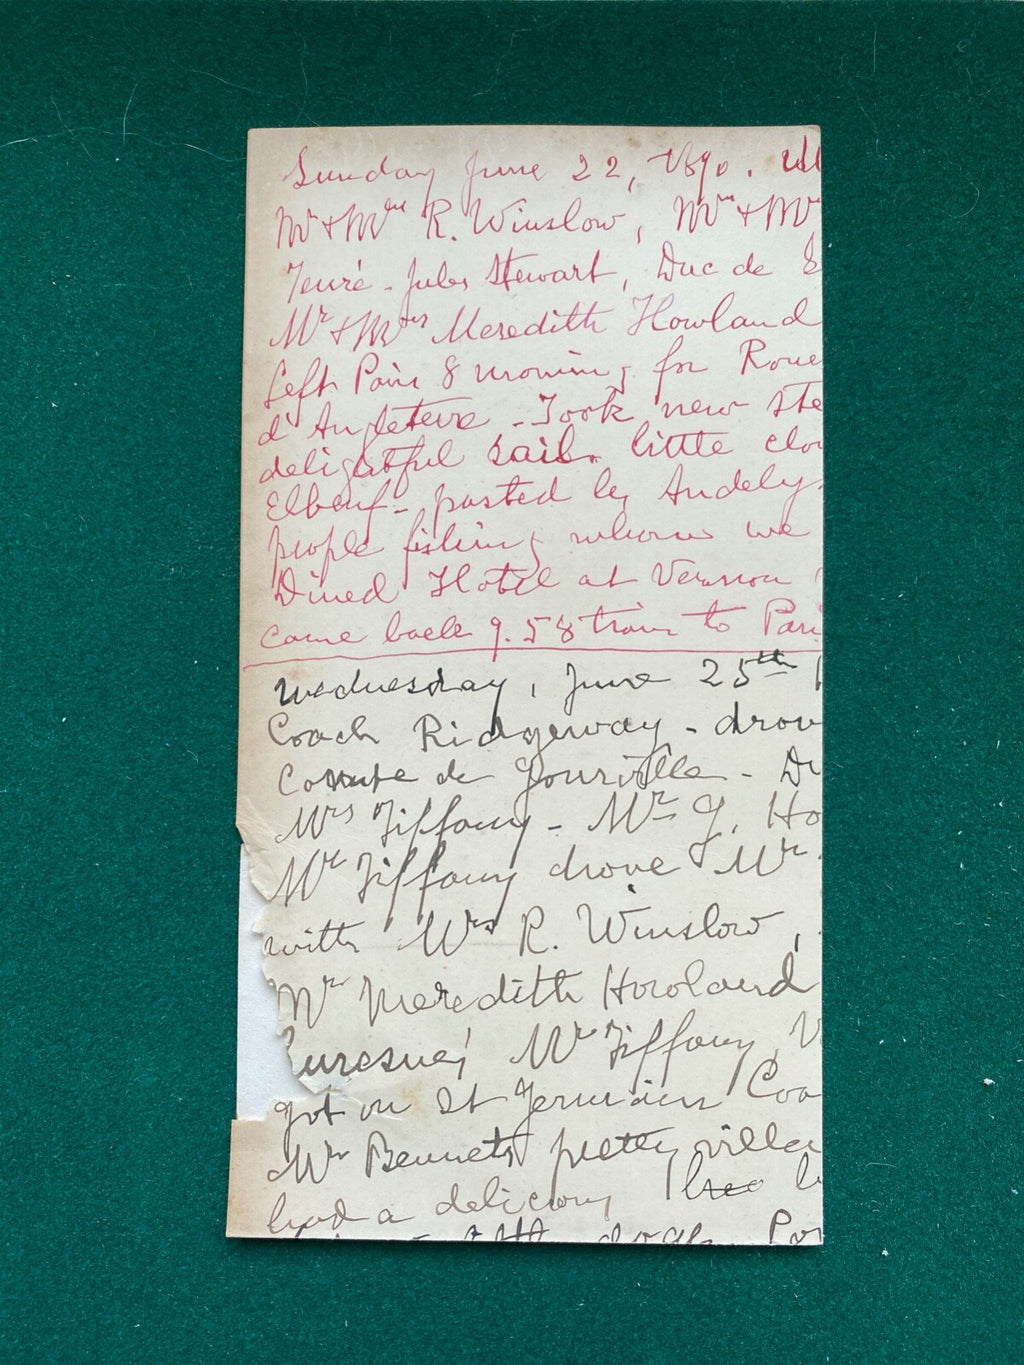 Sunday June 22, 1890.
Mr & Mrs R. Winslow, Mr & Mr
Jules Stewart, Duc de
Mr & Mrs Meredith Howland
Left Paris 8 morning for Roue
d'Angleterre - Took new ste
delightful sail. little clou
Elbeuf - passed by Andelys
people fishing whom we
Dined Hotel at Vernon
came back 9.58 train to Pari
Wednesday, June 25th
Coach Ridgeway - drov
Comte de Gourville - Du
Mrs Tiffany - Mr G. Ho
Mr Tiffany drove Mr
with Mrs R. Winslow,
Mr Meredith Howland
uresnes Mr Tiffany
got on St Germain Coa
Mr Bennets pretty villa
had a delicious